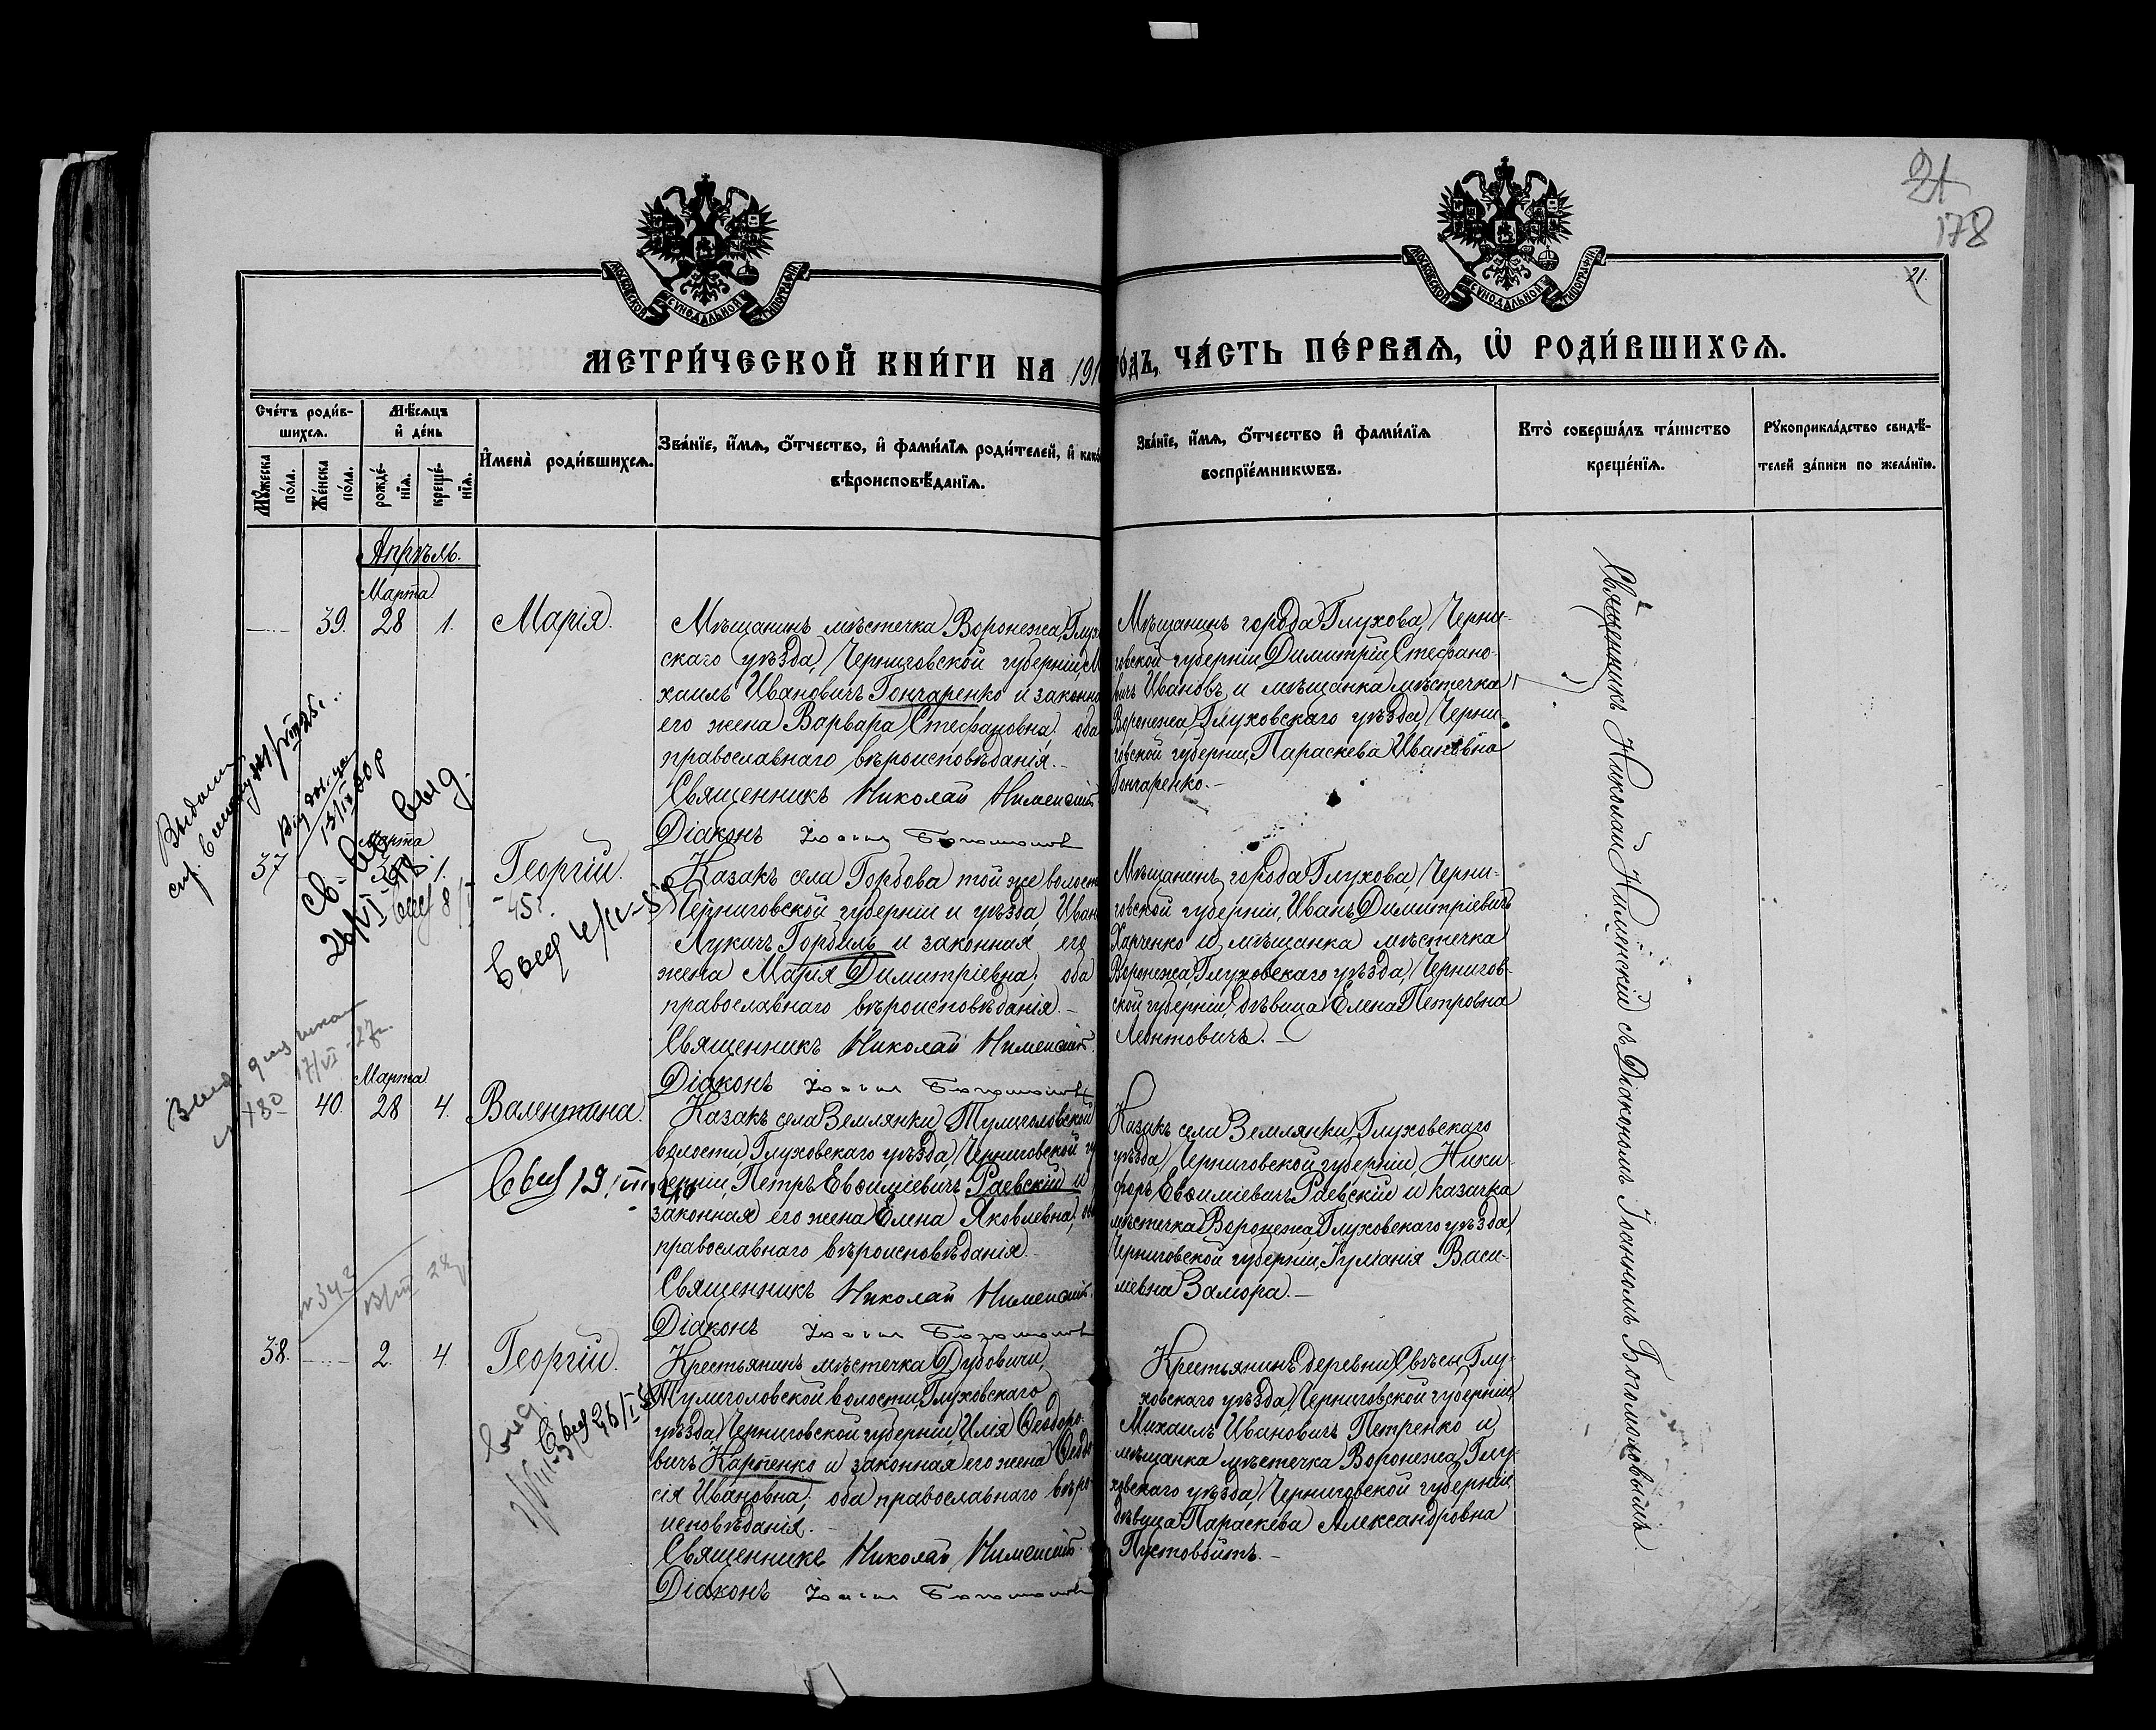 21
178
21.
МОСКОВСКОЙ СѴНОДАЛЬНОЙ ТИПОГРАФІИ
МОСКОВСКОЙ СѴНОДАЛЬНОЙ ТИПОГРАФІИ
МЕТРИ́ЧЕСКОЙ КНИ́ГИ НА 191 ГО́ДЪ, ЧА́СТЬ ПЕ́РВАѦ, Ѡ҆ РОДИ́ВШИХСѦ.
Сче́тъ роди́в-
шихсѧ.
Мꙋ́жеска по́ла.
Же́нска по́ла.
Мѣ́сѧцъ
и҆ де́нь
рожде́-
нїѧ.
креще́-
нїѧ.
И҆мена̀ роди́вшихсѧ.
Зва́нїе, и҆́мѧ, ѻ҆́тчество, и҆ фами́лїѧ роди́телей, и҆ како
вѣроисповѣ́данїѧ.
Зва́нїе, и҆́мѧ, ѻ҆́тчество и҆ фами́лїѧ
воспрїе́мникѡвъ.
Кто̀ соверша́лъ та́инство
креще́нїѧ.
Рꙋкоприкла́дство свидѣ́-
телей за́писи по жела́нїю.
Апрѣль.
Марта
39. 28 1. Марія.
Мѣщанинъ мѣстечка Воронежа, Глухо
скаго уѣзда, Черниговской губерніи, М
хаилъ Ивановичъ Гончаренко и законна
его жена Варвара Стефановна, оба
православнаго вѣроисповѣданія.-
Священникъ Николай Нименскій
Діаконъ Іоаннъ Богомоловъ
Мѣщанинъ города Глухова, Черни-
говской губерніи Димитрій Стефано-
вичъ Ивановъ и мѣщанка мѣстечка
Воронежа, Глуховскаго уѣзда, Черни-
говской губерніи, Параскева Ивановна
Гончаренко.-
Марта
37 1. Георгій.
Казакъ села Горбова той же волости
Черниговской губерніи и уѣзда, Иван
Лукичъ Горбиль и законная его
жена Марія Димитріевна, оба
православнаго вѣроисповѣданія.-
Священникъ Николай Нименскій.
Діаконъ Іоаннъ Богомоловъ
Мѣщанинъ города Глухова, Черни-
говской губерніи, Иванъ Димитріевичъ
Харченко и мѣщанка мѣстечка
Воронежа, Глуховскаго уѣзда, Чернигов-
ской губерніи, дѣвица Елена Петровна
Леонтовичъ.-
Марта
40. 28 4. Валентина.
Казакъ села Землянки, Тулиголовской
волости, Глуховскаго уѣзда, Черниговской гу
берніи, Петръ Евѳиміевичъ Раевскій и
законная его жена Елена Яковлевна, оба
православнаго вѣроисповѣданія.-
Священникъ Николай Нименскій.
Діаконъ Іоаннъ Богомоловъ
Казакъ села Землянки, Глуховскаго
уѣзда, Черниговской губерніи, Ники-
форъ Евѳиміевичъ Раевскій и казачка
мѣстечка Воронежа, Глуховскаго уѣзда,
Черниговской губерніи, Іуліанія Васи-
ліевна Замора.-
38. 2. 4. Георгій.
Крестьянинъ мѣстечка Дубовичи,
Тулиголовской волости, Глуховскаго
уѣзда, Черниговской губерніи, Илія Ѳеодоро-
вичъ Карпенко и законная его жена Ѳеодо
сія Ивановна, оба православнаго вѣро-
исповѣданія.
Священникъ Николай Нименскій.
Діаконъ Іоаннъ Богомоловъ
Крестьянинъ деревни Свѣсы, Глу-
ховскаго уѣзда, Черниговской губерніи,
Михаилъ Ивановичъ Петренко и
мѣщанка мѣстечка Воронежа, Глу-
ховскаго уѣзда, Черниговской губерніи,
дѣвица Параскева Александровна
Пустовойтъ.-
Священникъ Николай Нименскій съ Діакономъ Іоанномъ Богомоловымъ.